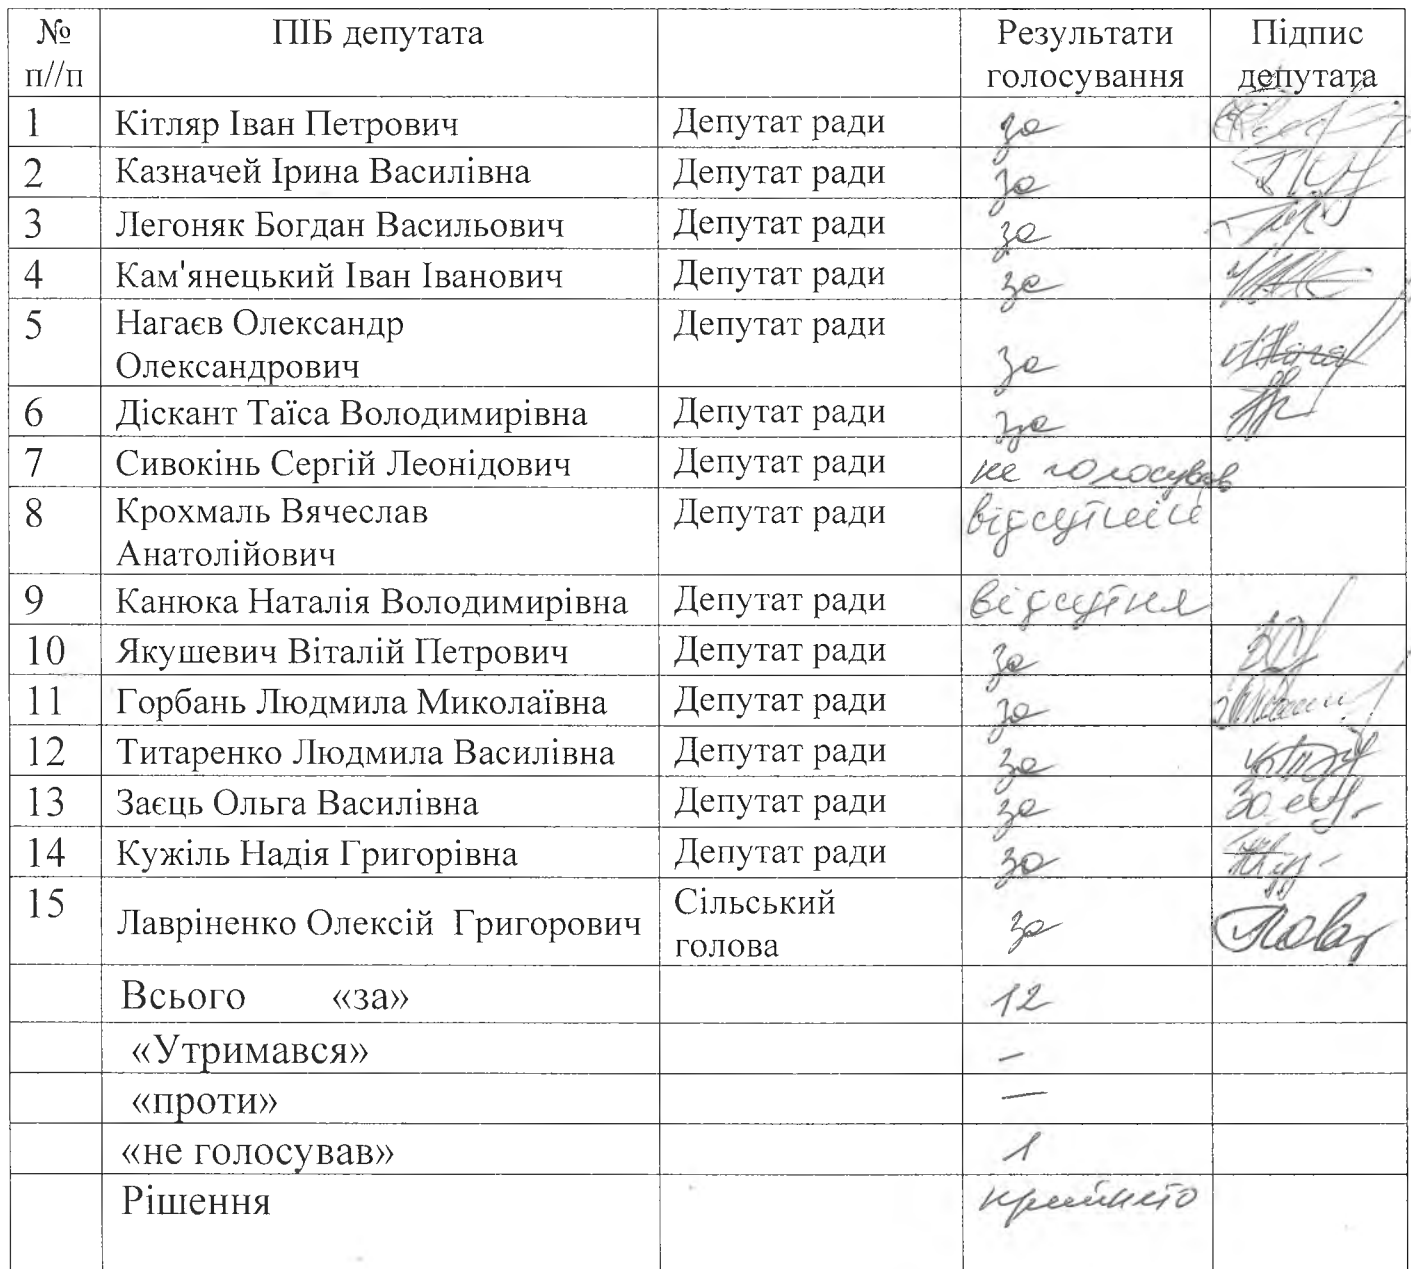 № п//п ПІБ депутата Результати голосування Підпис депутата
1 Кітляр Іван Петрович Депутат ради за
2 Казначей Ірина Василівна Депутат ради за
3 Легоняк Богдан Васильович Депутат ради за
4 Кам'янецький Іван Іванович Депутат ради за
5 Нагаєв Олександр Олександрович Депутат ради за
6 Діскант Таїса Володимирівна Депутат ради за
7 Сивокінь Сергій Леонідович Депутат ради не голосував
8 Крохмаль Вячеслав Анатолійович Депутат ради відсутній
9 Канюка Наталія Володимирівна Депутат ради відсутня
10 Якушевич Віталій Петрович Депутат ради за
11 Горбань Людмила Миколаївна Депутат ради за
12 Титаренко Людмила Василівна Депутат ради за
13 Заєць Ольга Василівна Депутат ради за
14 Кужіль Надія Григорівна Депутат ради за
15 Лавріненко Олексій Григорович Сільський голова за
Всього «за» 12
«Утримався» –
«проти» —
«не голосував» 1
Рішення прийнято